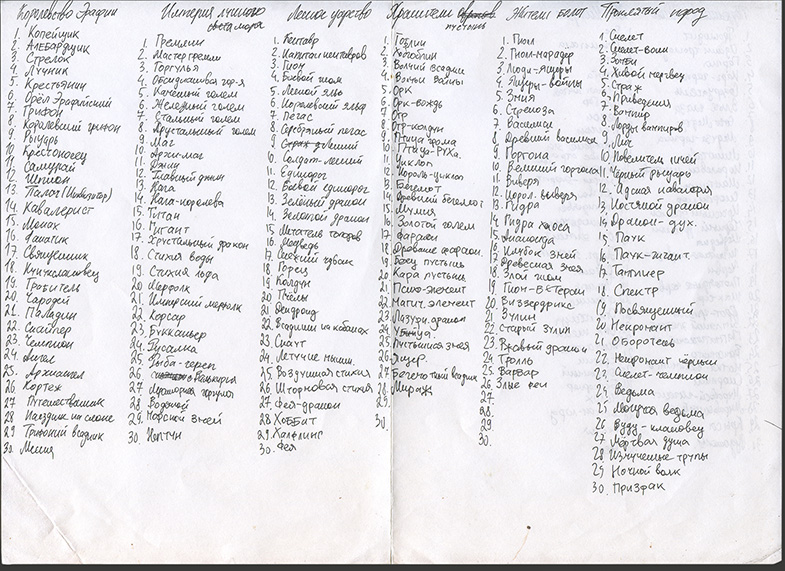 Королевство Эрафии
1. Копейщик
2. Алебардщик
3. Стрелок
4. Лучник
5. Крестьянин
6. Орёл Эрафийский
7. Грифон
8. Королевский грифон
9. Рыцарь
10. Крестоносец
11. Самурай
12. Шпион
13. Палач (Инквизитор)
14. Кавалерист
15. Монах
16. Фанатик
17. Священник
18. Куклуксклановец
19. Грабитель
20. Чародей
21. Паладин
22. Снайпер
23. Чемпион
24. Ангел
25. Архангел
26. Кортеж
27. Путешественник
28. Наездник на слоне
29. Троянский всадник
30.
Империя лунного
света моря
1. Гремлин
2. Мастер гремлин
3. Горгулья
4. Обсидиановая гор-я
5. Каменный голем
6. Железный голем
7. Стальной голем
8. Хрустальный голем
9. Маг
10. Архимаг
11. Джин
12. Главный джин
13. Нага
14. Нага-королева
15. Титан
16. Гигант
17. Хрустальный дракон
18. Стихия воды
19. Стихия льда
20. Мерфолк
21. Имперский мерфолк
22. Корсар
23. Букканьер
24. Русалка
25. Рыба-череп
26.
27.
28. Водяной
29. Морской змей
30. Нептун
Лесное царство
1. Кентавр
2. Капитан кентавров
3. Гном
4. Боевой гном
5. Лесной эльф
6. Королевский эльф
7. Пегас
8. Серебряный пегас
9. Страж Леший
10. Солдат-леший
11. Единорог
12. Боевой единорог
13. Зелёный дракон
14. Золотой дракон
15. Метатель топоров
16. Медведь
17.
18. Горец
19. Колдун
20. Пчёлы
21. Дендроид
22. Всадник на кабанах
23. Скаут
24. Летучие мыши
25. Воздушная стихия
26. Штормовая стихия
27. Фея-дракон
28. Хоббит
29. Халфлинг
30. Фея
Хранители
пустынь
1. Гоблин
2. Хобгоблин
3. Волчий всадник
4. Волчьи воины
5. Орк
6. Орк-вождь
7. Огр
8. Огр-колдун
9. Птица грома
10. Птица-Рух
11. Циклоп
12. Король-циклоп
13. Бегемот
14. Древний бегемот
15. Мумия
16. Золотой голем
17. Фараон
18. Древние фараон.
19. пустынь
20. Кара пустынь
21. Психо-элемент
22. Магич. элемент
23. Лазурн. дракон
24.
25. Пустынная змея
26. Ящер
27. всадник
28. Мираж
29.
30.
Жители болот
1. Гнолл
2. Гнолл-мародер
3. Люди-Ящеры
4. Ящеры-войны
5. Змий
6. Стрекоза
7. Василиск
8. Древний василиск
9. Горгона
10. Великий горгона
11. Виверн
12. Корол. виверн
13. Гидра
14. Гидра хаоса
15. Анаконда
16. Клубок змей
17. Древесная змея
18. Злой гном
19. Гном-ветеран
20. Виззердрикс
21. Зулин
22. Старый зулин
23. Ржавый дракон
24. Тролль
25. Варвар
26. Злые пни
27.
28.
29.
30.
Проклятый город
1. Скелет
2. Скелет-воин
3. Зомби
4. Живой мертвец
5. Страж
6. Приведения
7. Вампир
8. Лорды вампиров
9. Лич
10. Повелитель личей
11. Чёрный рыцарь
12. Адская кавалерия
13. Костяной дракон
14. Дракон-дух.
15. Паук
16. Паук-гигант
17.
18. Спектр
19. Посвященный
20. Некромант
21. Оборотень
22. Некромант чёрный
23. Скелет-чемпион
24. Ведьма
25. Молодая ведьма
26. Вуду-клановец
27. Мёртвая душа
28. Измученные трупы
29. Ночной волк
30. Призрак